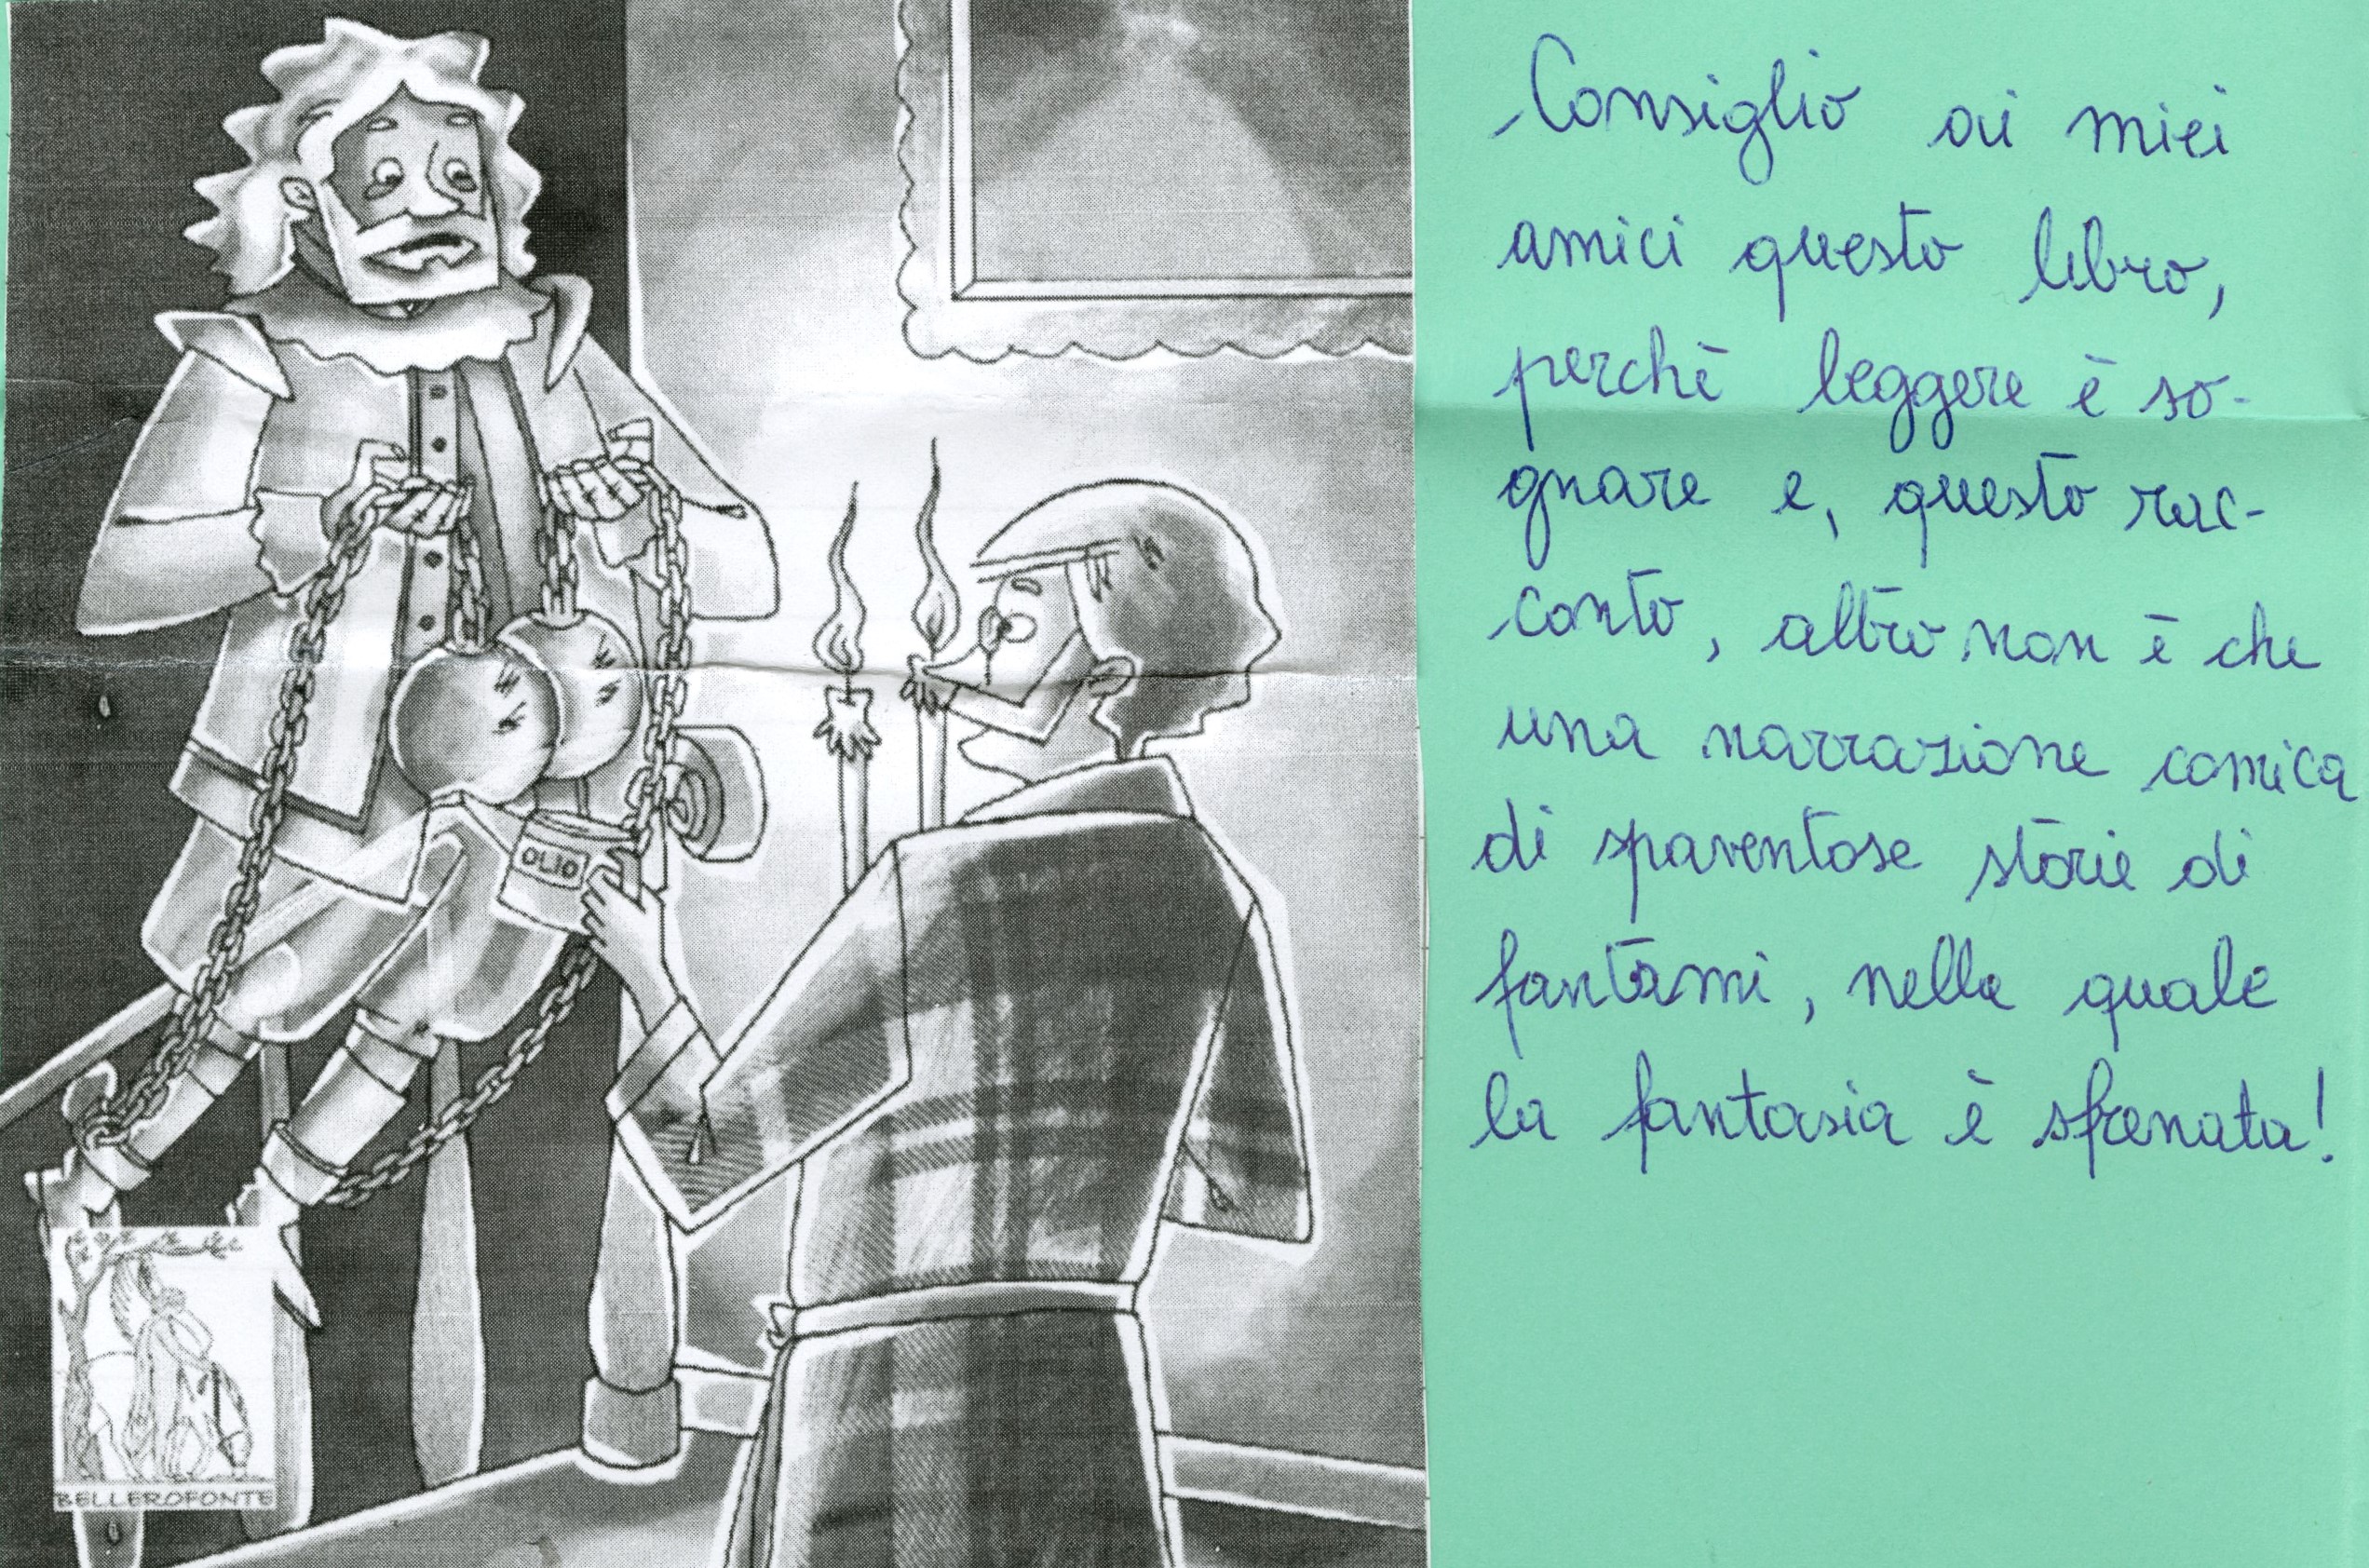 OLIO
BELLEROFONTE
Consiglio ai miei
amici questo libro,
perchè leggere è so-
gnare e, questo rac-
conto, altro non è che
una narrazione comica
di spaventose storie di
fantasmi, nella quale
la fantasia è sfrenata!